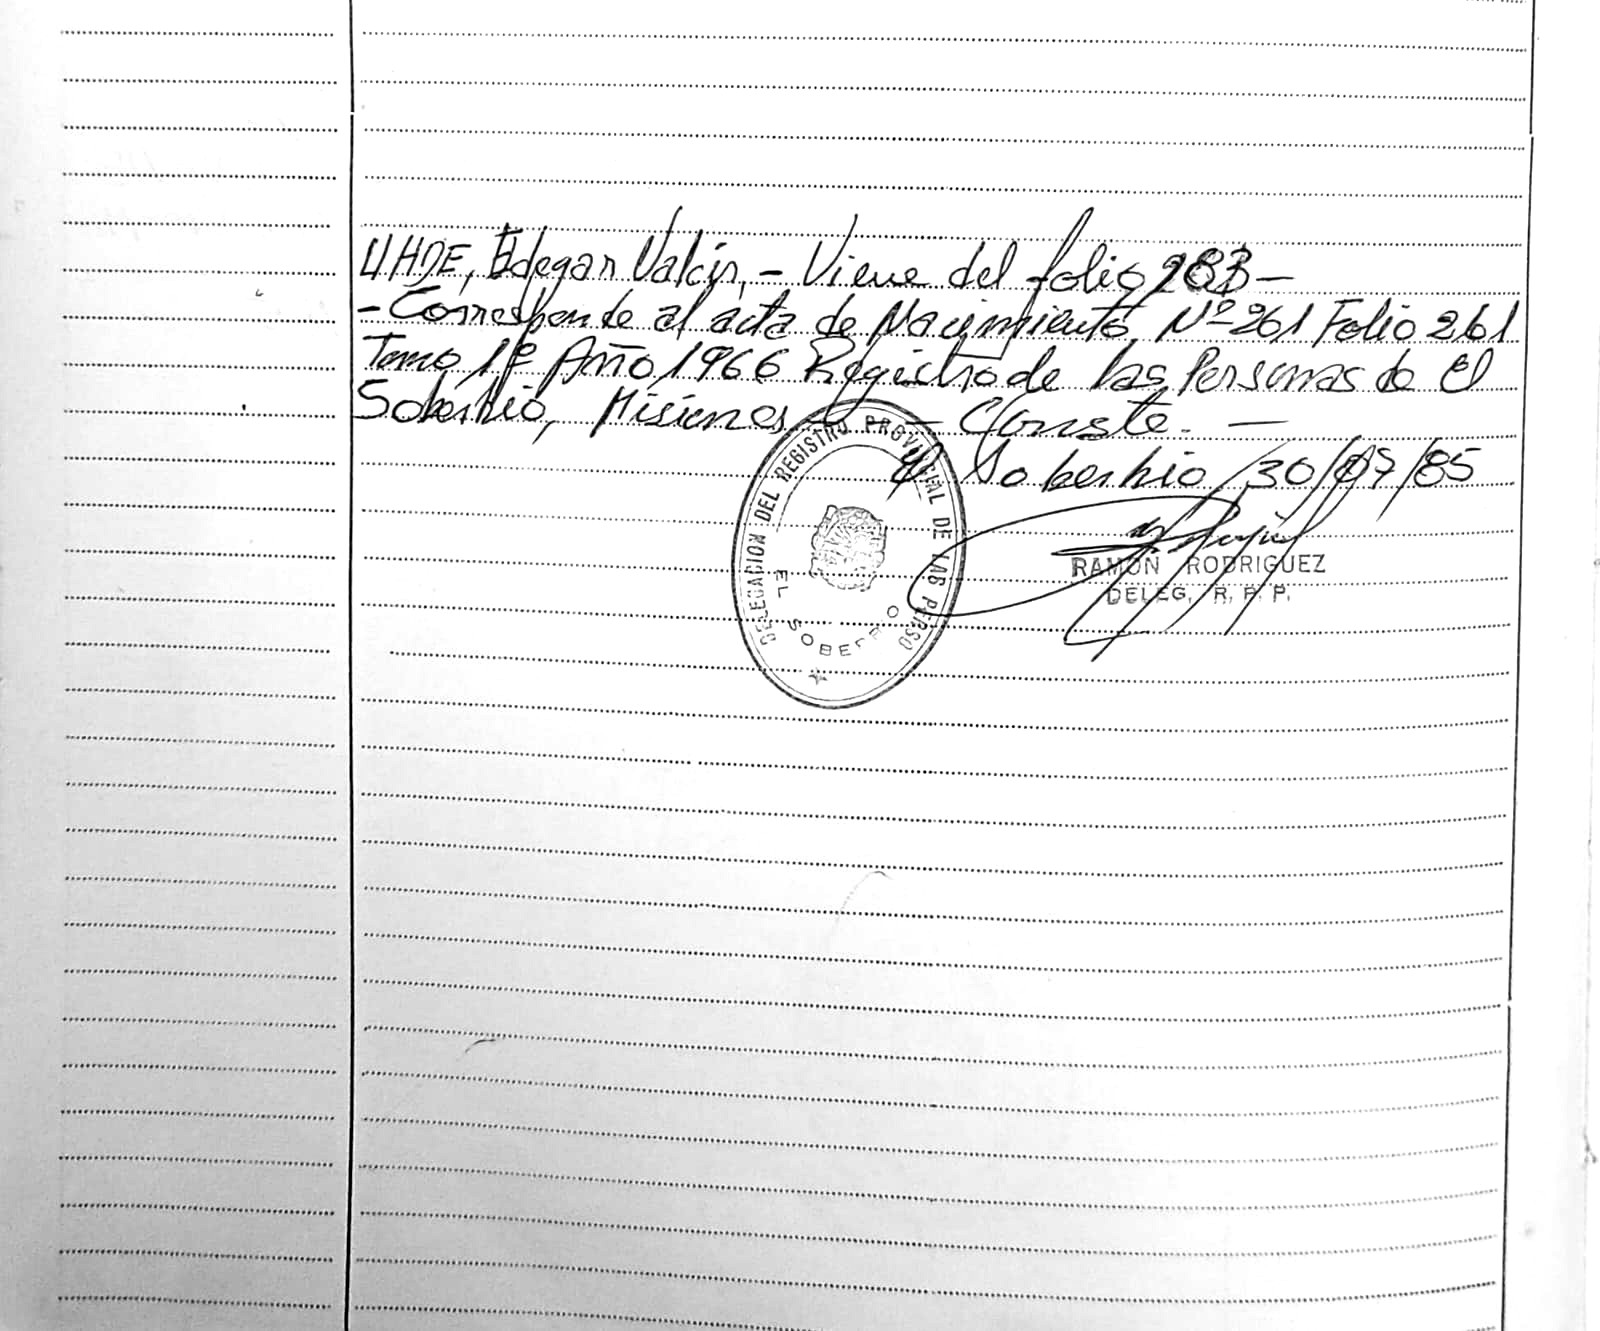 UHDE, Edegar Valcir, - Viene del folio 283 -
- Corresponde al acta de Nacimiento, Nº 261 Folio 261
Tomo 1º Año 1966 Registro de las Personas de El
Soberbio, Misiones - - Conste. -
El Soberbio /30/07/85
DELEGACION DEL REGISTRO PROVINCIAL DE LAS PERSO
EL SOBERBIO
RAMÓN RODRIGUEZ
DELEG. R. P. P.